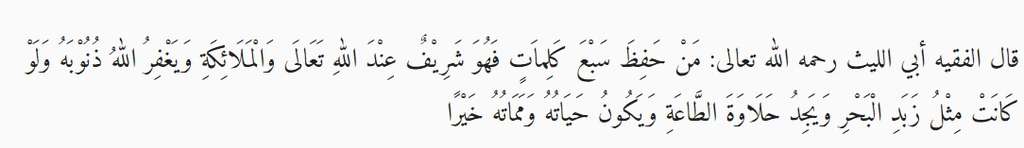 قال الفقيه أبي الليث رحمه الله تعالى: مَنْ حَفِظَ سَبْعَ كَلِمَاتٍ فَهُوَ شَرِيْفٌ عِنْدَ اللهِ تَعَالَى وَالْمَلَائِكَةِ وَيَغْفِرُ اللهُ ذُنُوْبَهُ وَلَوْ
كَانَتْ مِثْلُ زَبَدِ الْبَحْرِ وَيَجِدُ حَلَاوَةَ الطَّاعَةِ وَيَكُونُ حَيَاتُهُ وَمَمَاتُهُ خَيْرًا